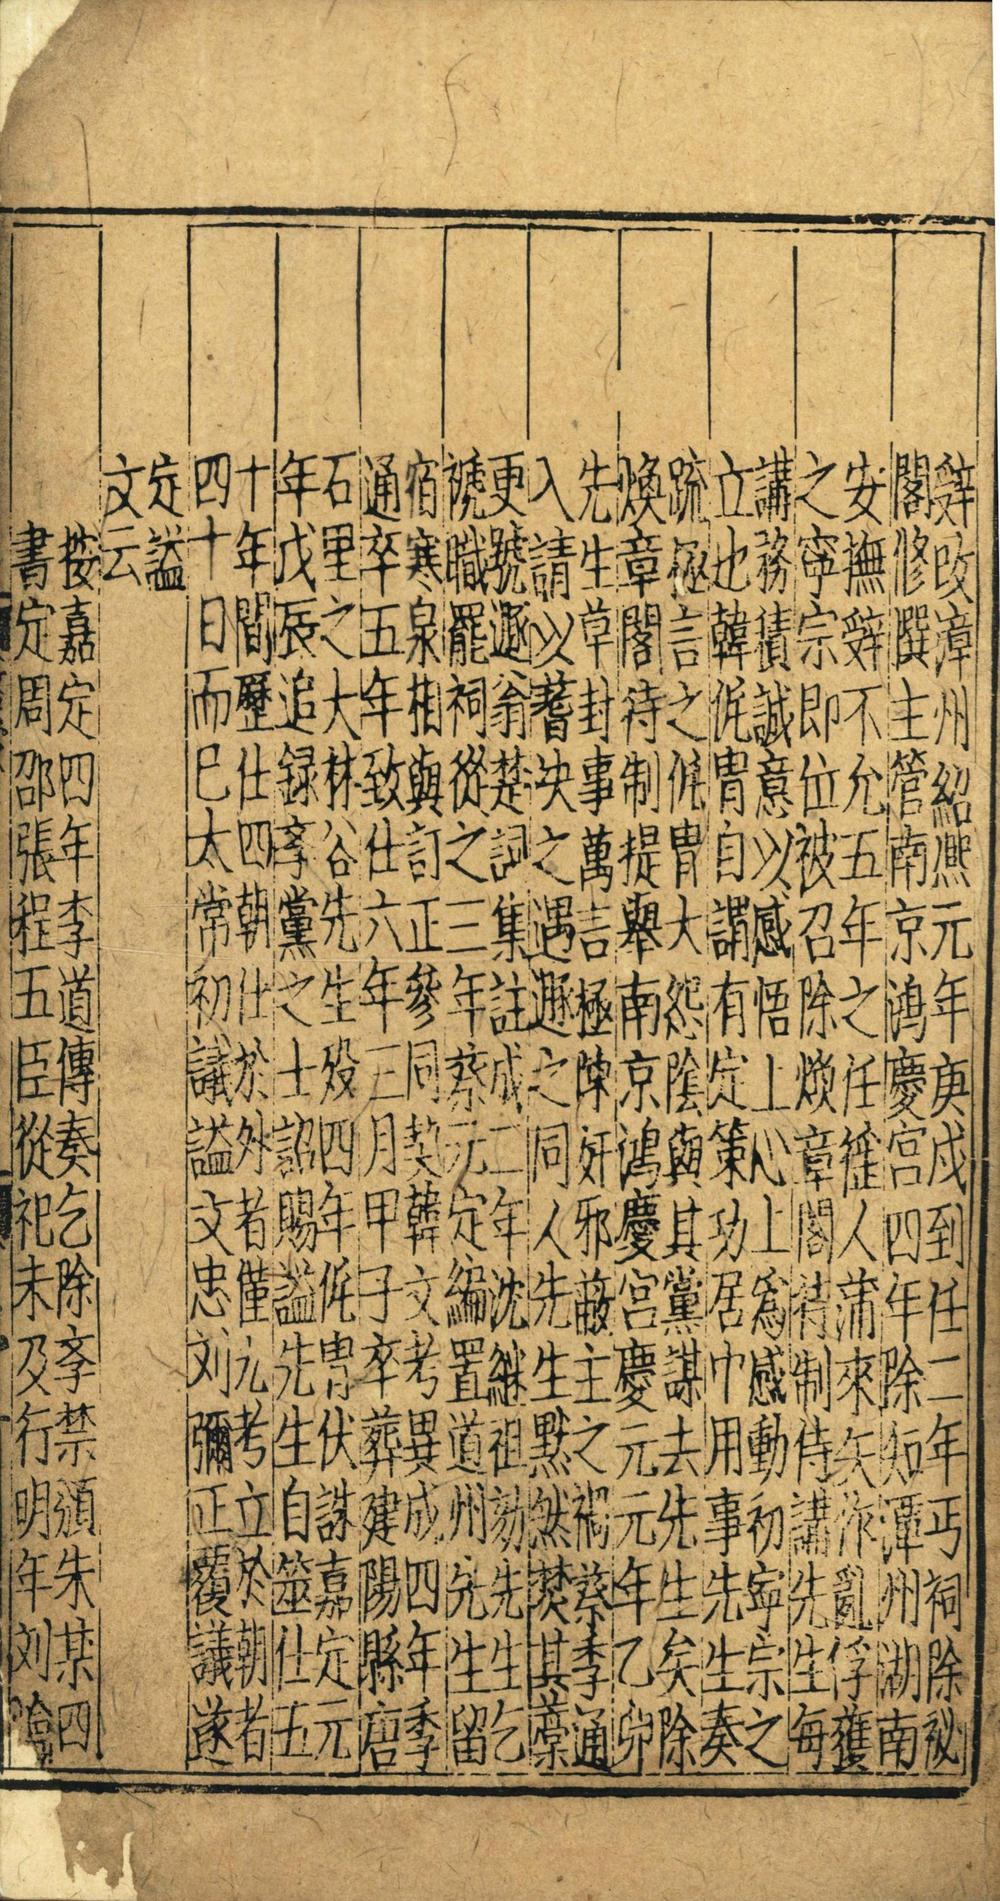 辤改漳州紹熈元年庚戍到任二年丐祠除祕
閣修撰主管南京鴻慶宮四年除知潭州湖南
安撫辤不允五年之任徭人蒲來矢作亂俘獲
之寧宗即位被召除煥章閣待制侍講先生每
講務積誠意以感悟上心上爲感動初寧宗之
立也韓侂胄自謂有定策功居中用事先生奏
疏極言之侂胄大怨陰與其黨謀去先生矣除
煥章閣待制提舉南京鴻慶宮慶元元年乙卯
先生草封事萬言極陳奸邪蔽主之禍蔡季通
入請以蓍决之遇遯之同人先生默然焚其藁
更號遯翁楚詞集註成二年沈継祖劾先生乞
禠職罷祠從之三年蔡元定編置道州先生留
宿寒泉相與訂正參同契韓文考異成四年季
通卒五年致仕六年三月甲子卒葬建陽縣唐
石里之大林谷先生殁四年侂胄伏誅嘉定元
年戊辰追録孝黨之士詔賜謚先生自筮仕五
十年間歷仕四朝仕於外者僅九考立於朝者
四十日而巳太常初議謚文忠刘彌正覆議遂
定謚
文云
按嘉定四年李道傳奏乞除孝禁頒朱某四
書定周邵張程五臣從祀未及行明年刘